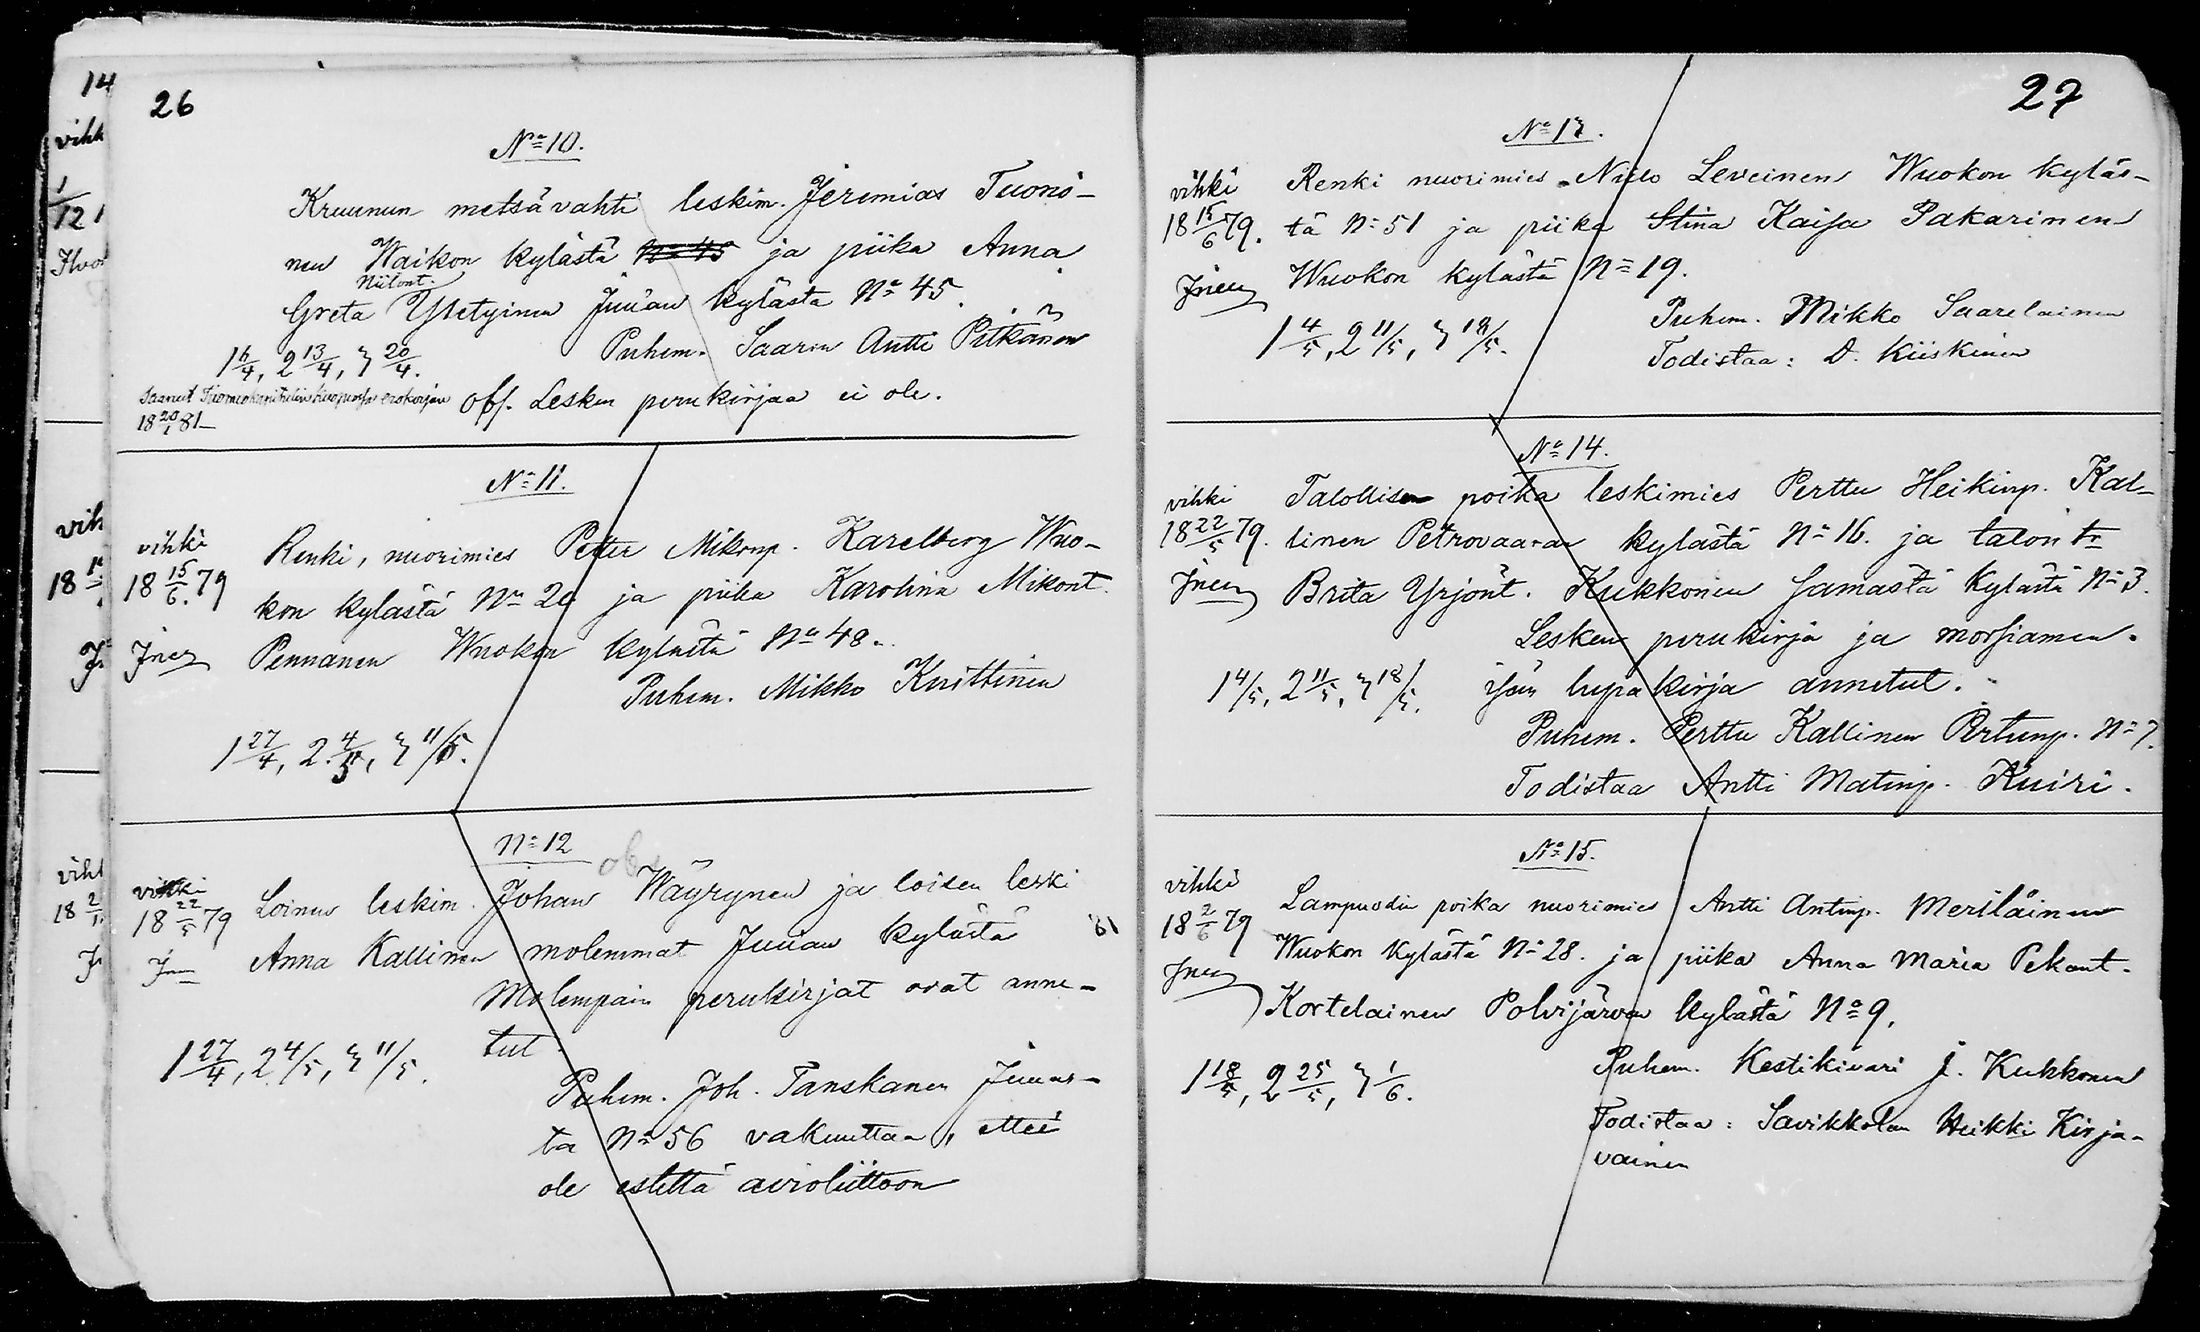 26
No 10.
Kruunun metsävahti leskim. Jeremias Tuono-
nen Waikon kylästä No 45 ja piika Anna
Niilont.
Greta Ysetyinen Juuan kylästä No 45.
1 6/4, 2 13/4, 3 20/4.
Puhem. Saarin Antti Pitkänen
Saanut Tuomiokapitulin Kuopiossa erokirjan
18 20/1 81
Obs. Lesken perukirjaa ei ole.
No 11.
vihki
18 15/6 79
Renki, nuorimies Petter Mikonp. Karelberg Wuo-
kon kylästä No 20 ja piika Karolina Mikont.
Pennanen Wuokon kylästä No 48.
Puhem. Mikko Kuittinen
1 27/4, 2 4/5, 3 11/5.
No 12
vihki
18 22/5 79
Loinen leskim. Johan Wäyrynen ja loisen leski
Anna Kallinen molemmat Juuan kylästä 61
Molempain perukirjat ovat anne-
tut.
1 27/4, 2 4/5, 3 11/5.
Puhem. Joh. Tanskanen Juuas-
ta No 56 vakuuttaa, ettei
ole estettä avioliittoon
27
No 13.
vihki
18 15/6 79.
Renki nuorimies Niilo Leveinen Wuokon kyläs-
tä No 51 ja piika Stina Kaisa Pakarinen
Wuokon kylästä No 19.
1 4/5, 2 11/5, 3 18/5.
Puhem. Mikko Saarelainen
Todistaa: D. Kiiskinen
No 14.
vihki
18 22/5 79.
Talollisen poika leskimies Perttu Heikinp. Kal-
linen Petrovaaran kylästä No 16. ja talon tr
Brita Yrjönt. Kukkonen samasta kylästä No 3.
Lesken perukirja ja morsiamen
isän lupakirja annetut.
1 4/5, 2 11/5, 3 18/5.
Puhem. Perttu Kallinen Pertunp. No 7.
Todistaa Antti Matinp. Kuiri.
No 15.
vihki
18 2/6 79
Lampuodin poika nuorimies Antti Antinp. Meriläinen
Wuokon kylästä No 28. ja piika Anna Maria Pekant.
Kortelainen Polvijärven kylästä No 9.
1 18/5, 2 25/5, 3 1/6.
Puhem. Kestikivari J. Kukkonen
Todistaa: Savikkolan Heikki Kirja-
vainen